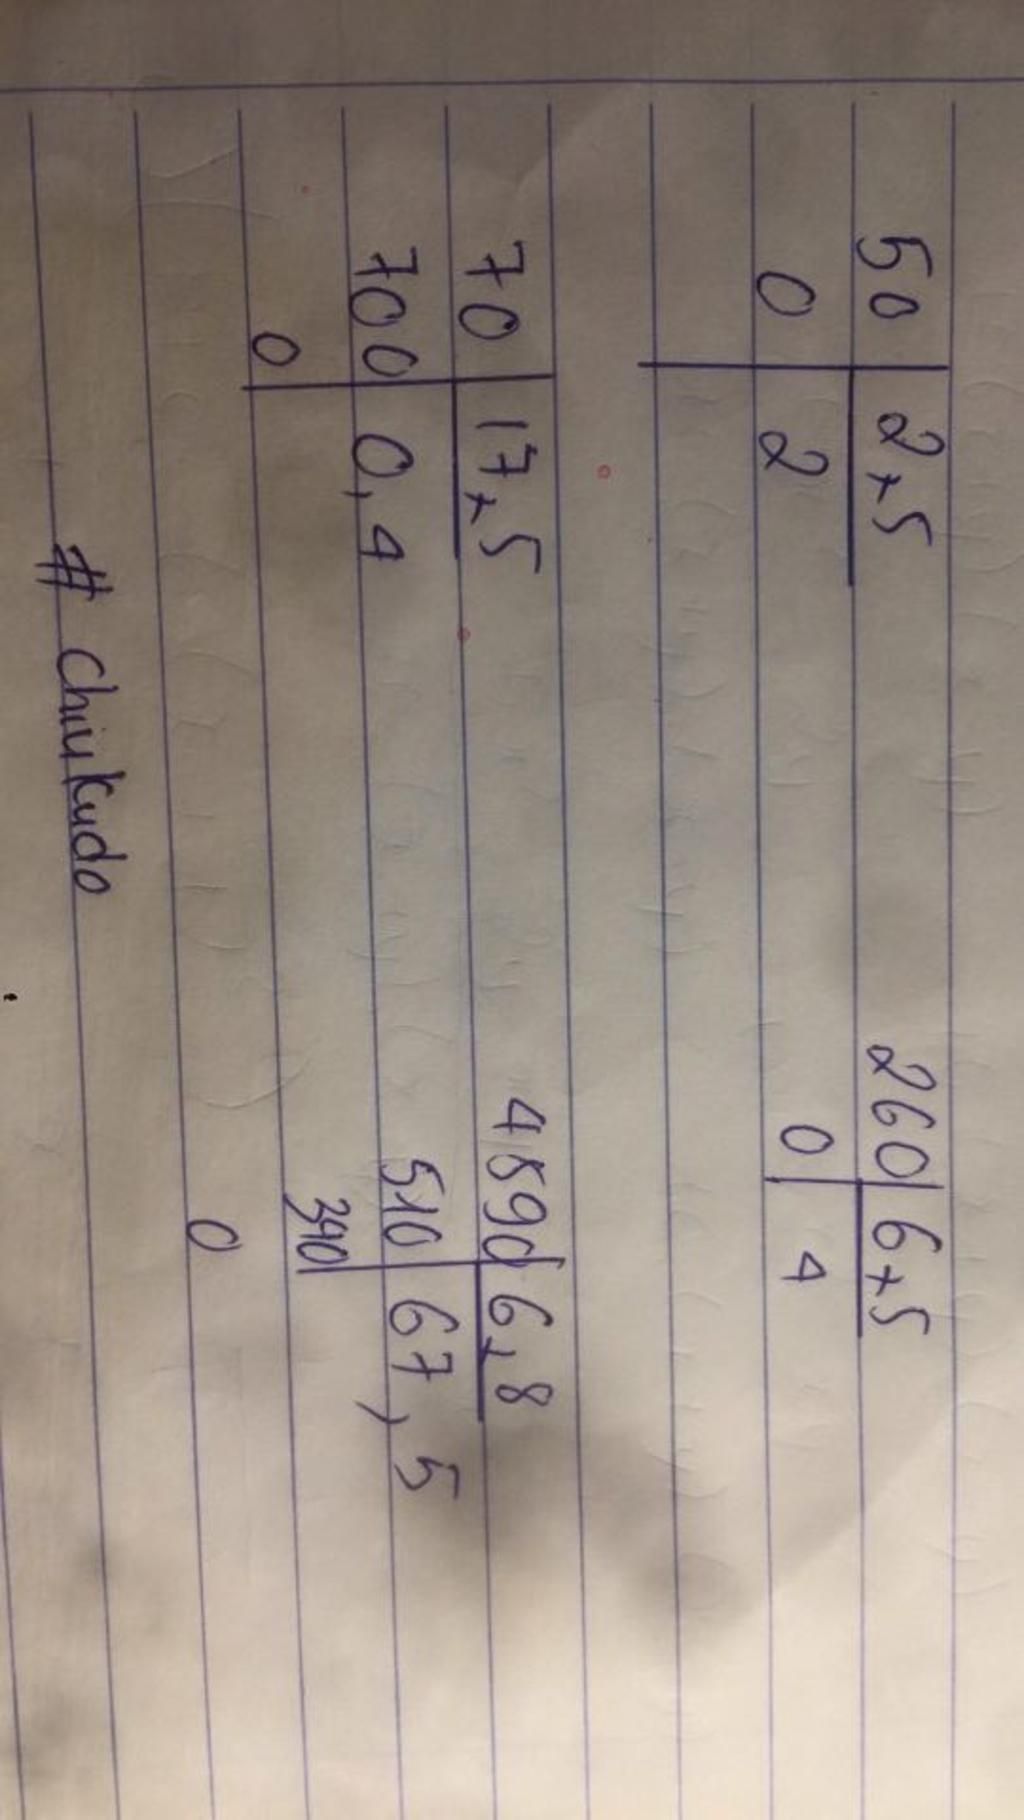 50 2,5 260 6,5
0 2 0 4
70 17,5 4590 6,8
700 0,4 510 67,5
0 340
0
# Chiukudo